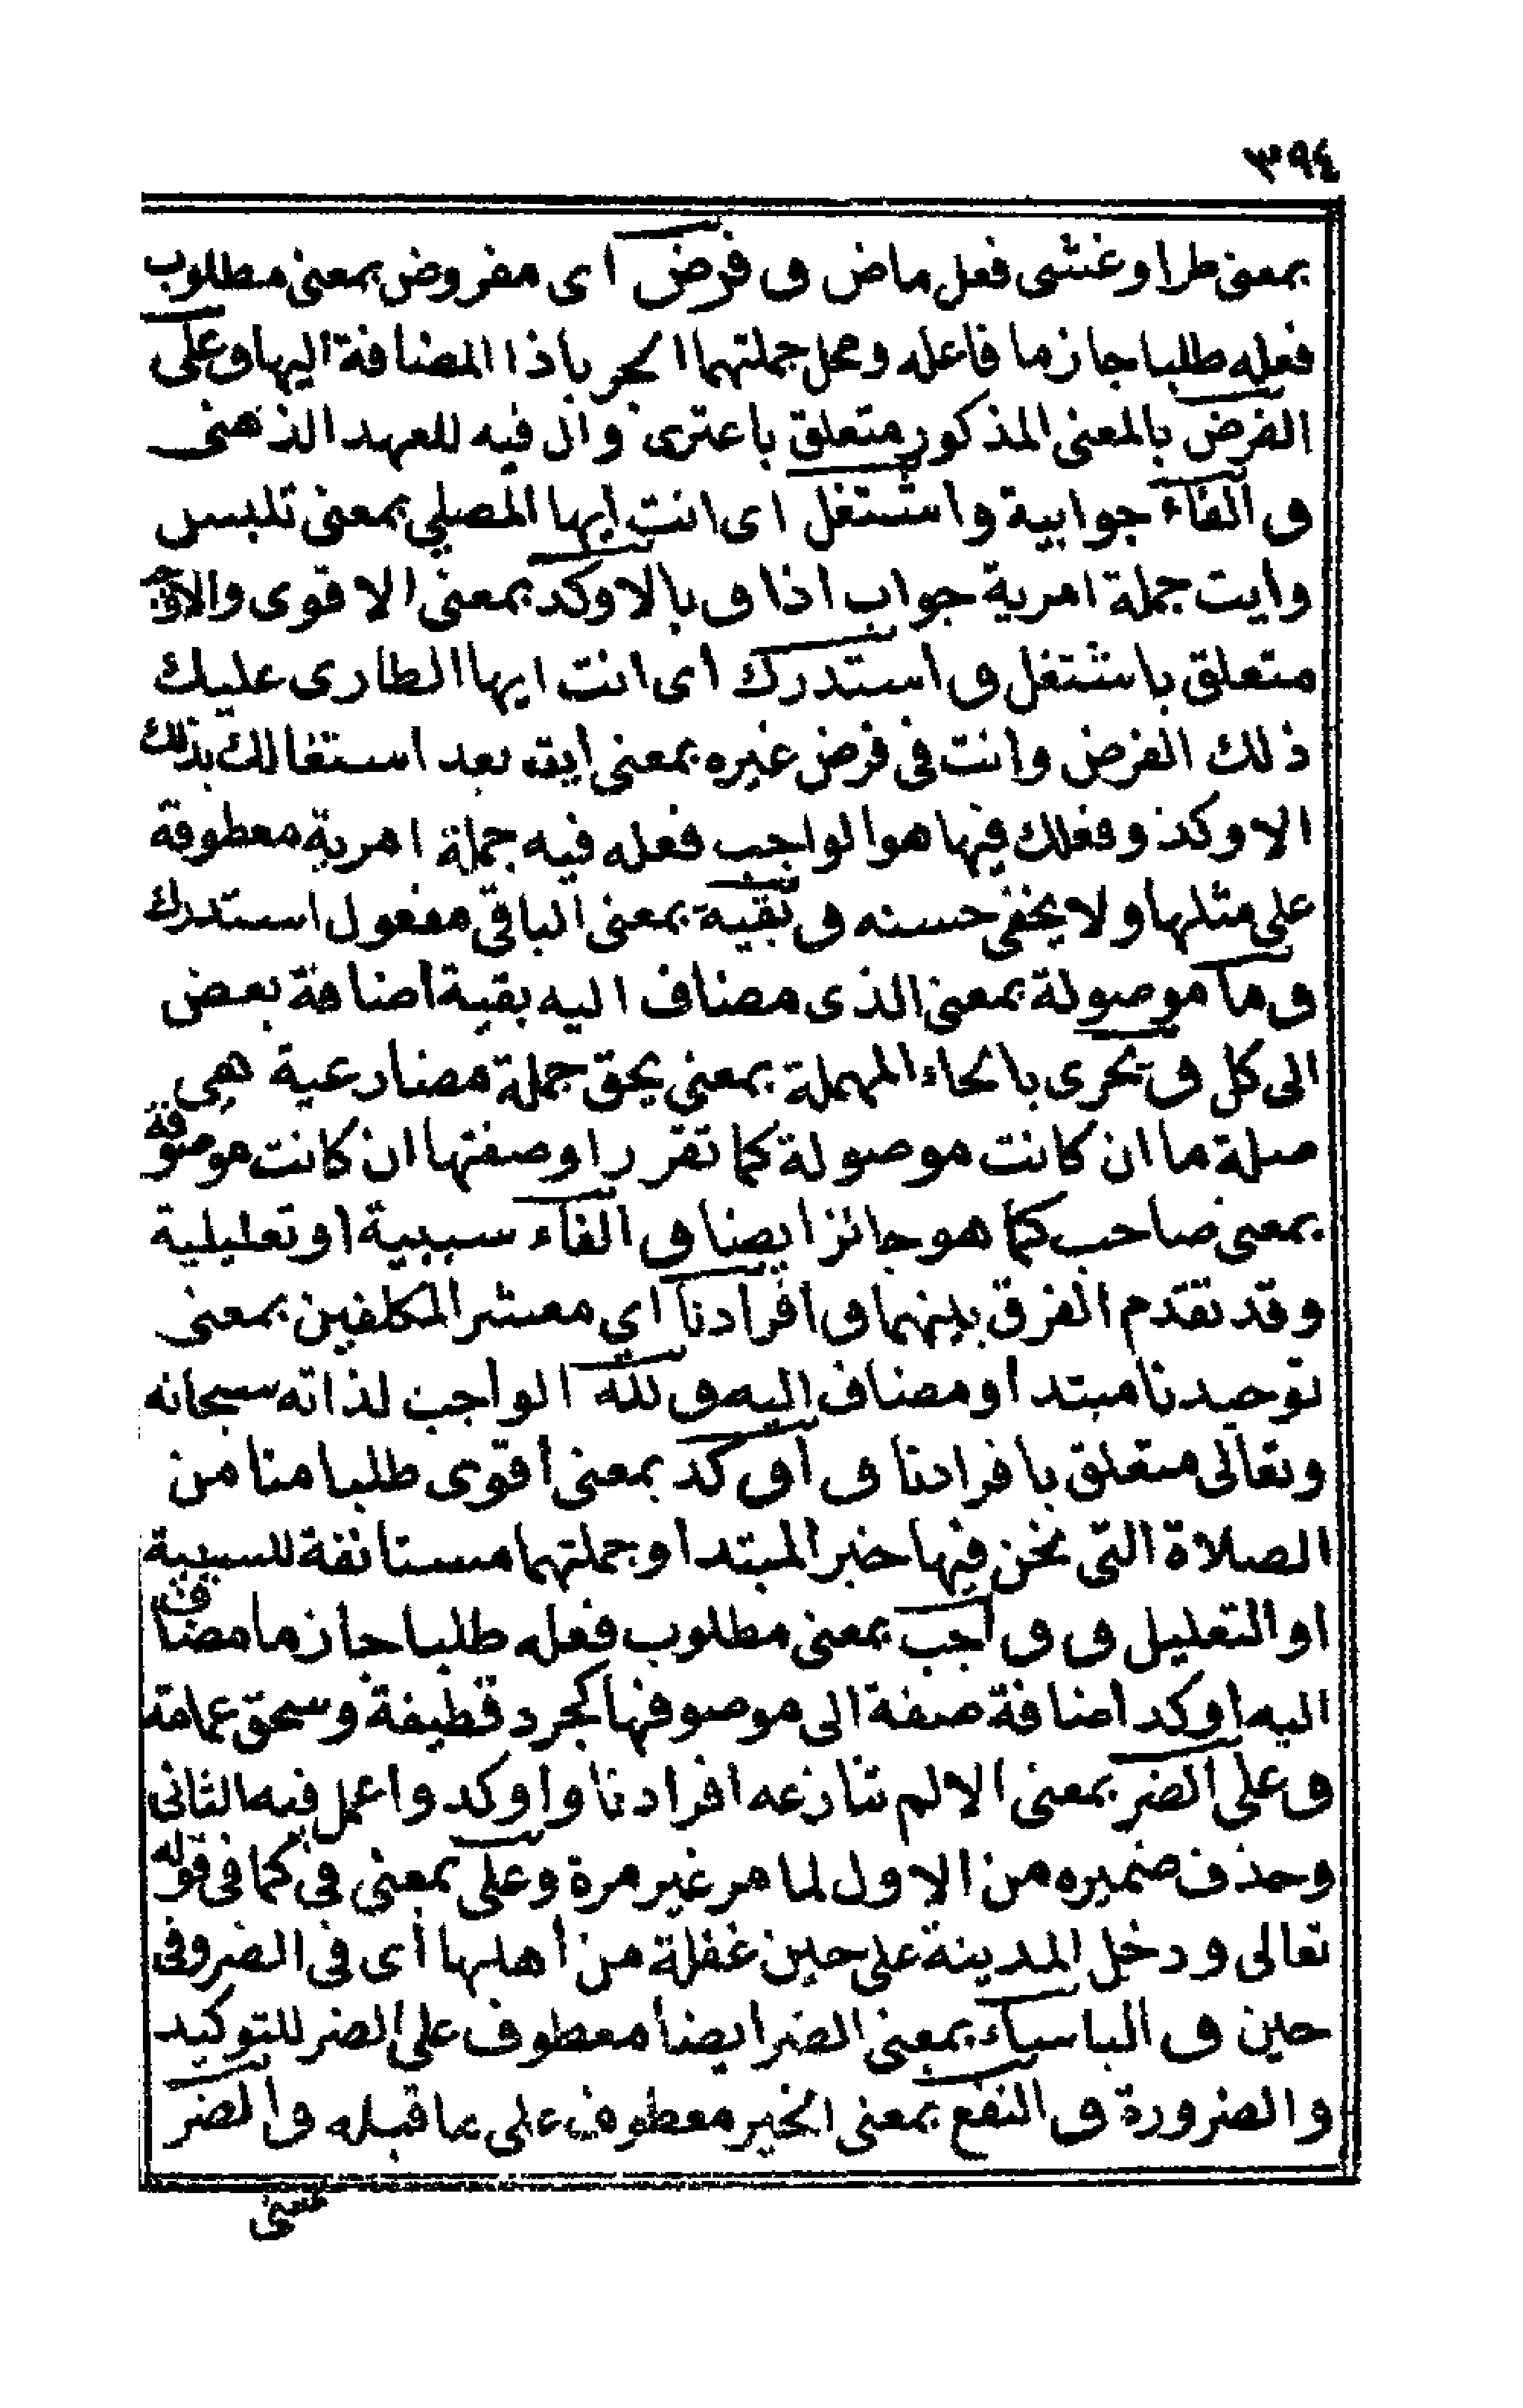 ٣٩٤
بمعنى طرا وغشى فعل ماض و فرض اى مفروض بمعنى مطلوب
فعله طلبا جازما فاعله ومحل جملتهما الجر باذا المضافة اليها وعلى
الفرض بالمعنى المذكور متعلق باعترى وال فيه للعهد الذهنى
و الفاء جوابية واشتغل اى انت ايها المصلي بمعنى تلبس
وأيت جملة امرية جواب اذا و بالاوكد بمعنى الاقوى والارجح
متعلق باشتغل و استدرك أى انت ايها الطارى عليك
ذلك الفرض وانت فى فرض غيره بمعنى أيت بعد اشتغالك بذلك
الاوكد وفعلك فيها هو الواجب فعله فيه جملة امرية معطوفة
على مثلها ولا يخفى حسنه و بقية بمعنى الباقى مفعول استدرك
و ما موصولة بمعنى الذى مضاف اليه بقية اضافة بعض
الى كل و يحرى بالحاء المهملة بمعنى يحق جملة مضارعية هى
صلة ما ان كانت موصولة كما تقرر او صفتها ان كانت موصوفة
بمعنى صاحب كما هو جائز ايضا و الفاء سببية او تعليلية
وقد تقدم الفرق بينهما و افرادنا اي معشر المكلفين بمعنى
توحيدنا مبتدأ ومضاف اليه و لله الواجب لذاته سبحانه
وتعالى متعلق بافرادنا و أوكد بمعنى أقوى طلبا منا من
الصلاة التى نحن فيها خبر المبتدا وجملتهما مستانفة للسببية
او التعليل و واجب بمعنى مطلوب فعله طلبا جازما مضاف
اليه اوكد اضافة صفة الى موصوفها كجرد قطيفة وسحق عمامة
و على الضر بمعنى الالم تنازعه افرادنا واوكد واعمل فيه الثانى
وحذف ضميره من الاول لما مر غير مرة وعلى بمعنى فى كما فى قوله
تعالى ودخل المدينة على حين غفلة من أهلها أى فى الضر وفى
حين و الباساء بمعنى الضر ايضا معطوف على الضر للتوكيد
والضرورة و النفع بمعنى الخير معطوف على ما قبله والضر